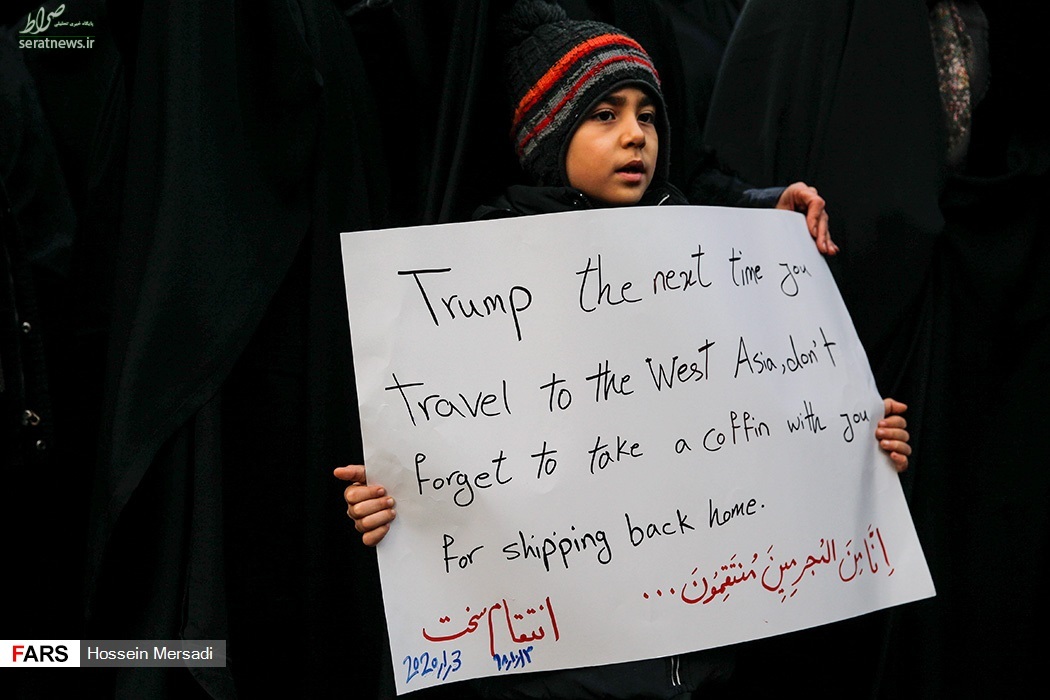 صراط
پایگاه خبری تحلیلی
seratnews.ir
Trump the next time you
travel to the West Asia, don't
forget to take a coffin with you
for shipping back home.
اِنّا مِنَ المُجرِمِينَ مُنتَقِمُونَ ...
انتقام سخت
2020,1,3
FARS Hossein Mersadi